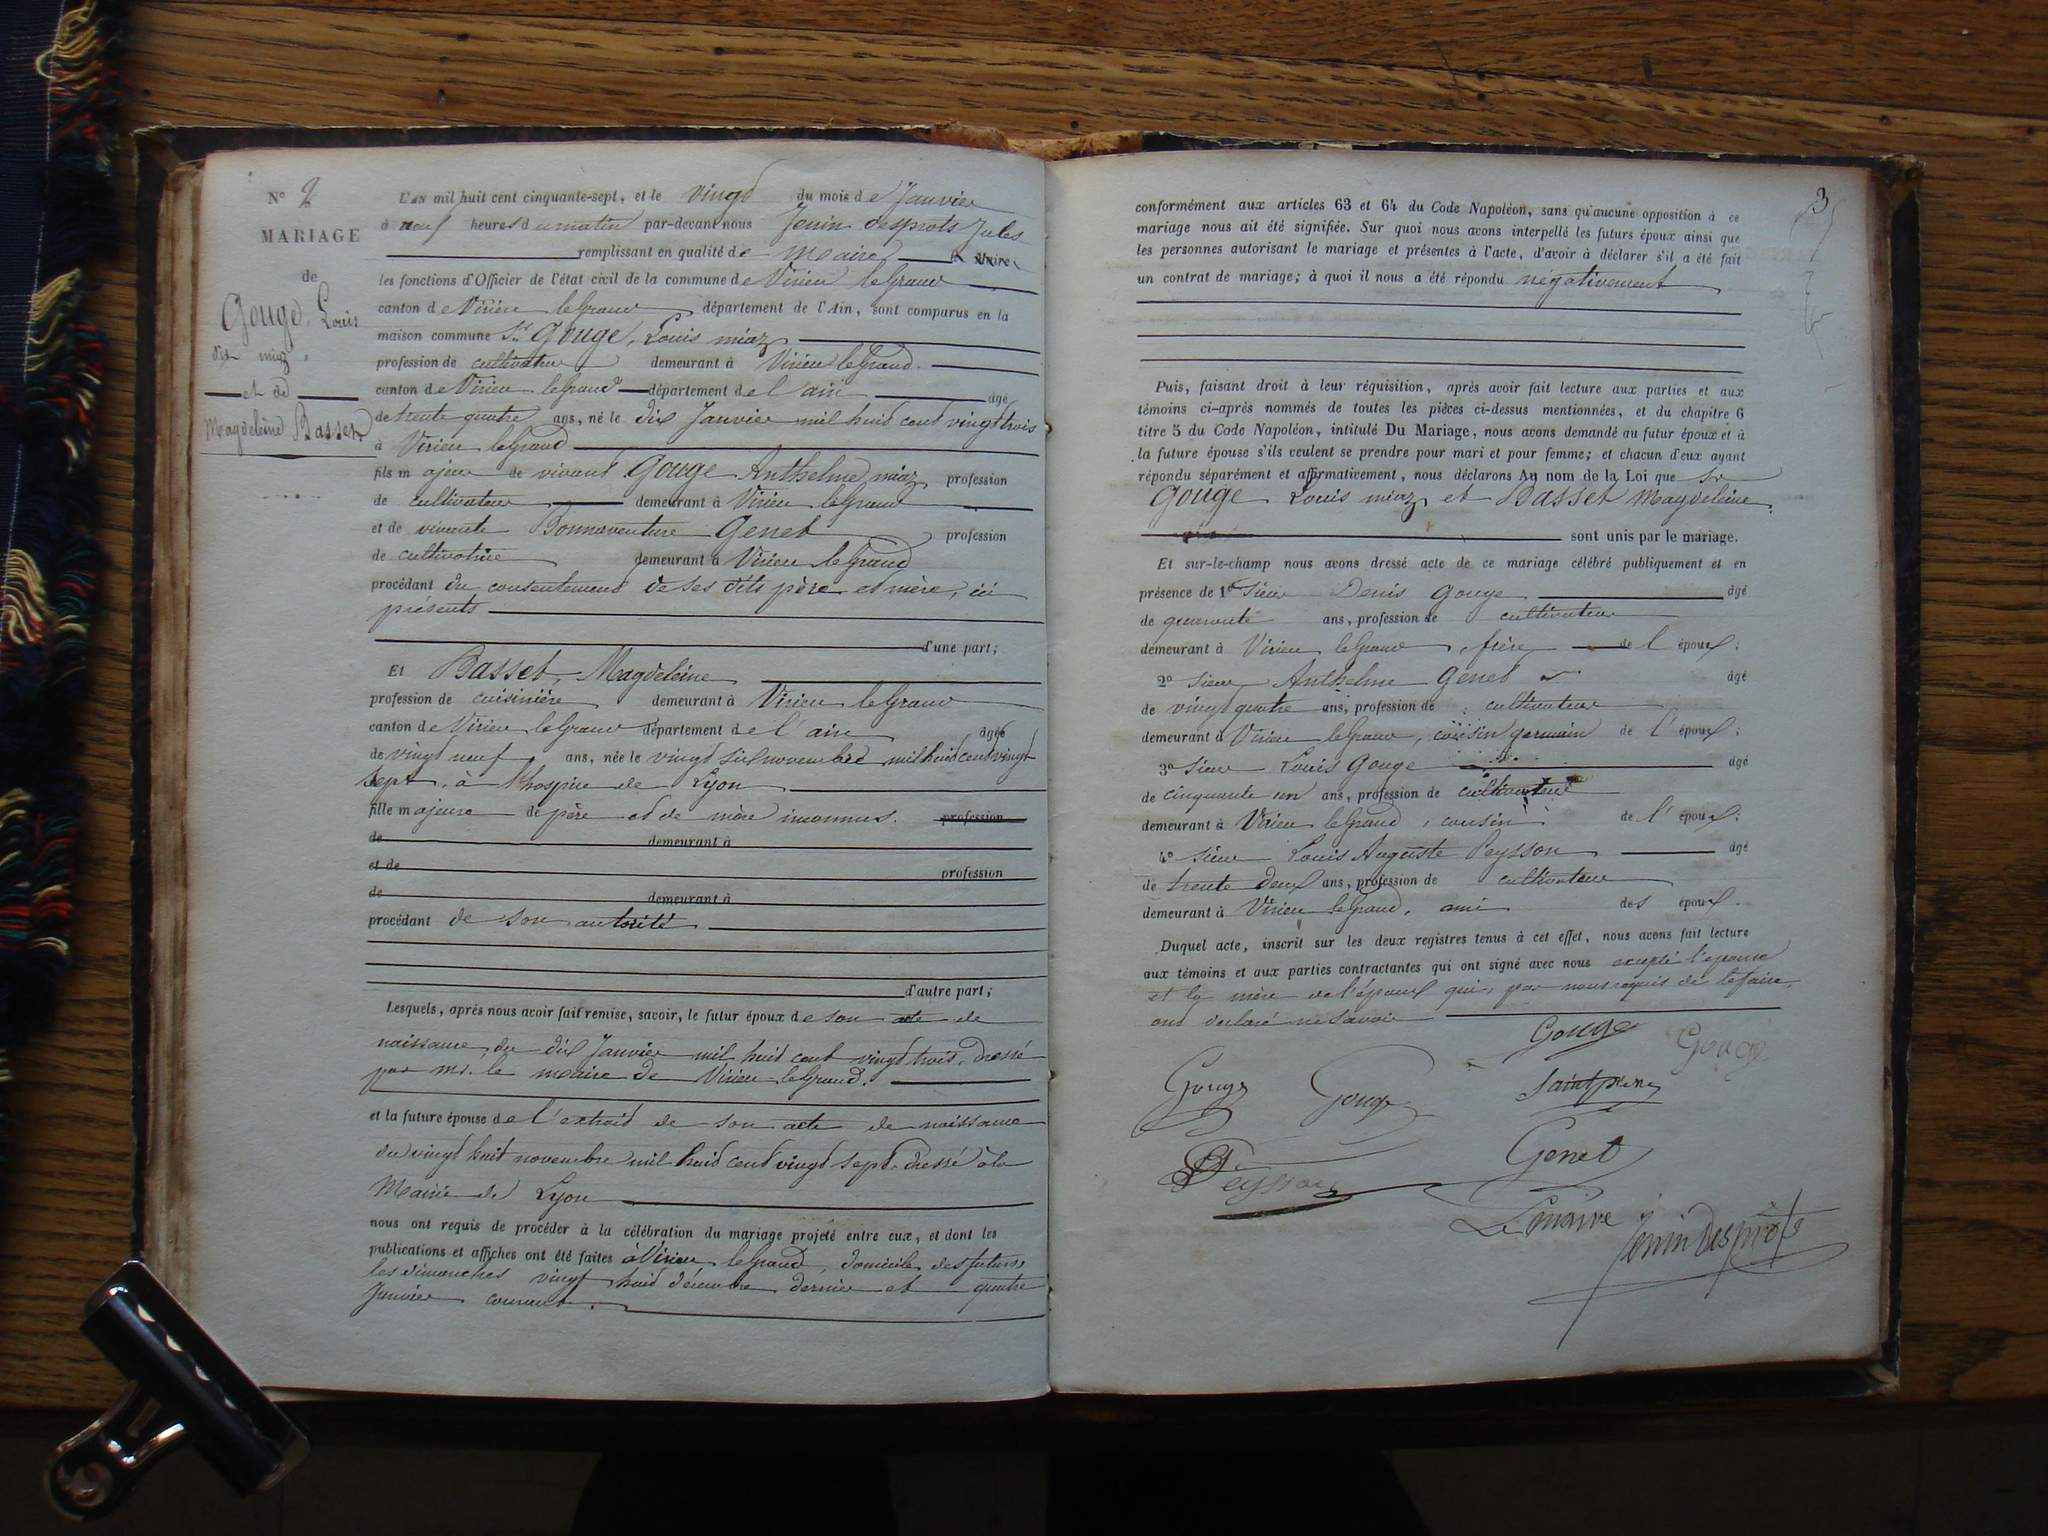 N° 2
MARIAGE
de
Gouge, Louis
dit miaz,
et de
Magdeleine Basset
L'AN mil huit cent cinquante-sept, et le vingt du mois de Janvier
à neuf heures du matin par-devant nous Jenin desprots Jules
remplissant en qualité de maire
les fonctions d'Officier de l'état civil de la commune de Virieu le grand
canton de Virieu legrand département de l'Ain, sont comparus en la
maison commune Sr Gouge, Louis miaz
profession de cultivateur demeurant à Virieu legrand.
canton de Virieu legrand département de l'ain âgé
de trente quatre ans, né le dix Janvier mil huit cent vingt trois
à Virieu legrand
fils majeur de vivant Gouge Anthelme miaz profession
de cultivateur demeurant à Virieu legrand
et de vivante Bonnaventure Genet profession
de cultivatrice demeurant à Virieu legrand
procédant du consentement de ses dits père et mère, ici
présents
d'une part;
Et Basset, Magdeleine
profession de cuisinière demeurant à Virieu legrand
canton de Virieu legrand département de l'ain âgée
de vingt neuf ans, née le vingt six novembre mil huit cent vingt
sept, à l'hospice de Lyon
fille majeure de père et de mère inconnus. profession
de demeurant à
et de profession
de demeurant à
procédant de son autorité
d'autre part;
Lesquels, après nous avoir fait remise, savoir, le futur époux de son acte de
naissance, du dix Janvier mil huit cent vingt trois, dressé
par mr. le maire de Virieu-legrand.
et la future épouse de l'extrait de son acte de naissance
du vingt huit novembre mil huit cent vingt sept, dressé à la
Mairie de Lyon
nous ont requis de procéder à la célébration du mariage projeté entre eux, et dont les
publications et affiches ont été faites à Virieu legrand, domicile des futurs
les dimanches vingt huit décembre dernier et quatre
Janvier courant.
3
conformément aux articles 63 et 64 du Code Napoléon, sans qu'aucune opposition à ce
mariage nous ait été signifiée. Sur quoi nous avons interpellé les futurs époux ainsi que
les personnes autorisant le mariage et présentes à l'acte, d'avoir à déclarer s'il a été fait
un contrat de mariage; à quoi il nous a été répondu négativement
Puis, faisant droit à leur réquisition, après avoir fait lecture aux parties et aux
témoins ci-après nommés de toutes les pièces ci-dessus mentionnées, et du chapitre 6
titre 5 du Code Napoléon, intitulé Du Mariage, nous avons demandé au futur époux et à
la future épouse s'ils veulent se prendre pour mari et pour femme; et chacun d'eux ayant
répondu séparément et affirmativement, nous déclarons Au nom de la Loi que Sr
Gouge Louis miaz et Basset Magdeleine
sont unis par le mariage.
Et sur-le-champ nous avons dressé acte de ce mariage célébré publiquement et en
présence de 1° Sieur Denis Gouge âgé
de quarante ans, profession de cultivateur
demeurant à Virieu legrand, frère de l'époux;
2° Sieur Anthelme Genet âgé
de vingt quatre ans, profession de cultivateur
demeurant à Virieu legrand, cousin germain de l'époux;
3° Sieur Louis Gouge âgé
de cinquante un ans, profession de cultivateur
demeurant à Virieu legrand, cousin de l'époux;
4° Sieur Louis Auguste Peysson âgé
de trente deux ans, profession de cultivateur
demeurant à Virieu legrand, ami des époux.
Duquel acte, inscrit sur les deux registres tenus à cet effet, nous avons fait lecture
aux témoins et aux parties contractantes qui ont signé avec nous excepté l'épouse
et la mère de l'époux qui, par nous requis de le faire,
ont déclaré ne savoir
Gouge Gouge
Gouge Gouge Saintpierre
Peysson Genet
Le maire Jenin Desprots